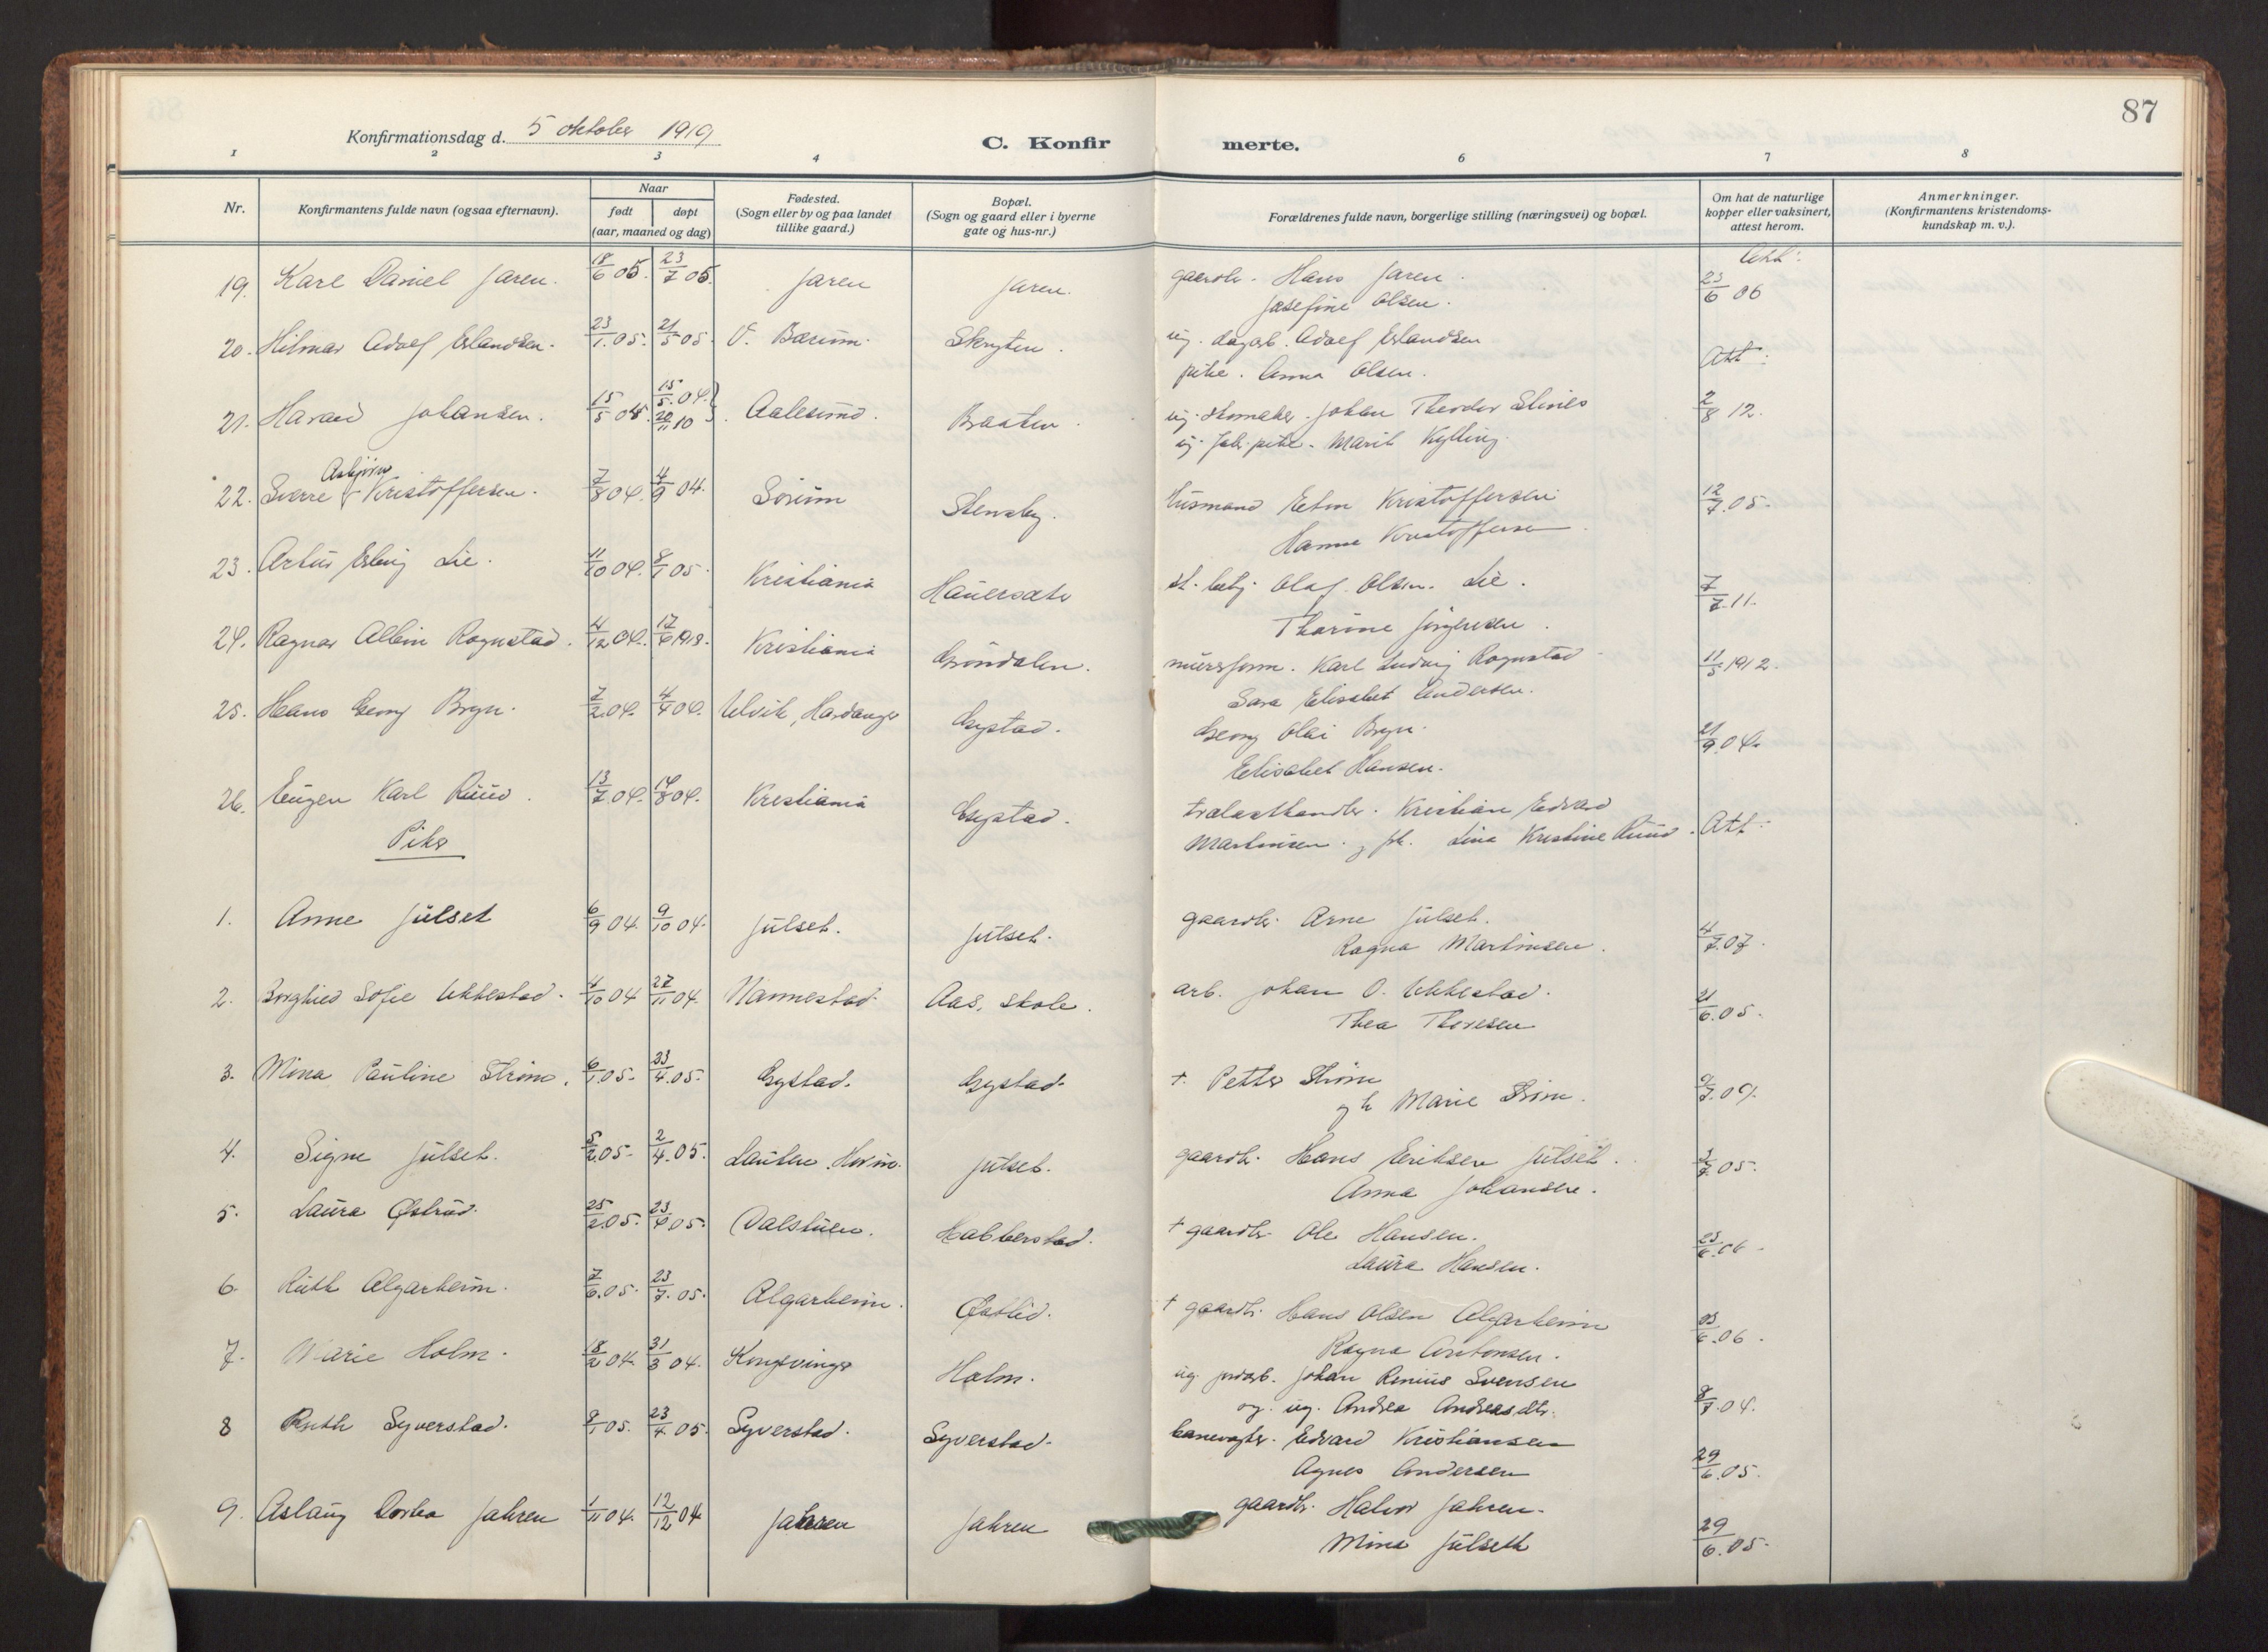 87
Konfirmationsdag d. 5 oktober 1919
C. Konfir merte.
1 2 3 4 6 7 8
Nr.
Konfirmantens fulde navn (ogsaa efternavn).
Naar
født døpt
(aar, maaned og dag)
Fødested.
(Sogn eller by og paa landet
tillike gaard.)
Bopæl.
(Sogn og gaard eller i byerne
gate og hus-nr.)
Forældrenes fulde navn, borgerlige stilling (næringsvei) og bopæl.
Om hat de naturlige
kopper eller vaksinert,
attest herom.
Anmerkninger.
(Konfirmantens kristendoms-
kundskap m. v.).
Att:
19. Karl Daniel Jaren. 18/6 05. 23/7 05. Jaren Jaren. gaardbr. Hans Jaren. 23/6 06
Josefine Olsen.
20. Hilmar Adolf Erlandsen. 23/1. 05. 21/5 05. V. Bærum. Skryten. ug. dagarb. Adolf Erlandsen Att:
pike. Anna Olsen.
21. Harald Johansen. 15/5 04. 15/5. 04. 20/11 10 Aalesund. Braaten. ug. skomaker. Johan Theodor 2/8 12.
ug. fabr. pike. Marit Kylling
22. Sverre Asbjørn Kristoffersen. 7/8 04. 4/9 04. Sörum Stensby. Husmand Kristoffersen 12/7. 05.
Hanna Kristoffersen
23. Artur Erling Lie. 11/10 04. 8/1 05. Kristiania Hauersæter st. betj. Olaf Olsen Lie. 7/7. 11.
Thorine Jörgensen.
24. Ragnar Albin Rognstad. 4/12 04. 17/6 1918. Kristiania Gröndalen. mursform. Karl Ludvig Rognstad 11/5 1912.
Sara Elisabet Andersen.
25. Hans Georg Bryn. 7/2. 04. 4/4 04. Ulvik, Hardanger Gystad. Georg Olai Bryn. 21/9. 04.
Elisabet Hansen.
26. Eugen Karl Ruud. 13/7. 04. 14/8 04. Kristiania Gystad. trælasthandler. Kristian Edvard
Martinsen. Lina Kristine Ruud. Att:
Piker
1. Anne Julset 6/9 04. 9/10 04. Julset. Julset. gaardbr. Arne Julset. 4/7. 07.
Ragna Martinsen.
2. Borghild Sofie Ukkestad. 4/10 04 27/11 04. Nannestad. Aas, skole. arb. Johan O. Ukkestad. 21/6. 05.
Thea Thoresen
3. Mina Pauline Ström. 6/1. 05. 23/4. 05. Gystad. Gystad. †. Petter Ström
Marie Ström.
4. Signe Julset. 5/2. 05. 2/4. 05. Julset. gaardbr. Hans Eriksen Julset.
Anna Johansen.
5. Laura Østrud. 25/2. 05. 23/4 05. Dalstuen. Habberstad. † gaardbr. Ole Hansen. 23/6. 06.
Laura Hansen.
6 Ruth Algarheim. 7/6. 05. 23/7. 05. Algarheim. Østlid. † gaardbr. Hans Olsen Algarheim
Ragna Antonsen.
7. Marie Holm. 18/2 04. 31/3 04. Kongsvinger Holm. ug. jordarb. Johan Renius Svensen
og. ug. Andrea Andreasdtr.
8 Ruth Syverstad. 9/1 05. 23/4. 05. Syverstad. Syverstad. banevogter. Edvard Kristiansen 29/6. 05.
Agnes Andersen
9. Aslaug Dortea Jahren 1/11 04. 12/12 04 Jahren Jahren gaardbr. Halvor Jahren. 29/6. 05.
Mina Julseth